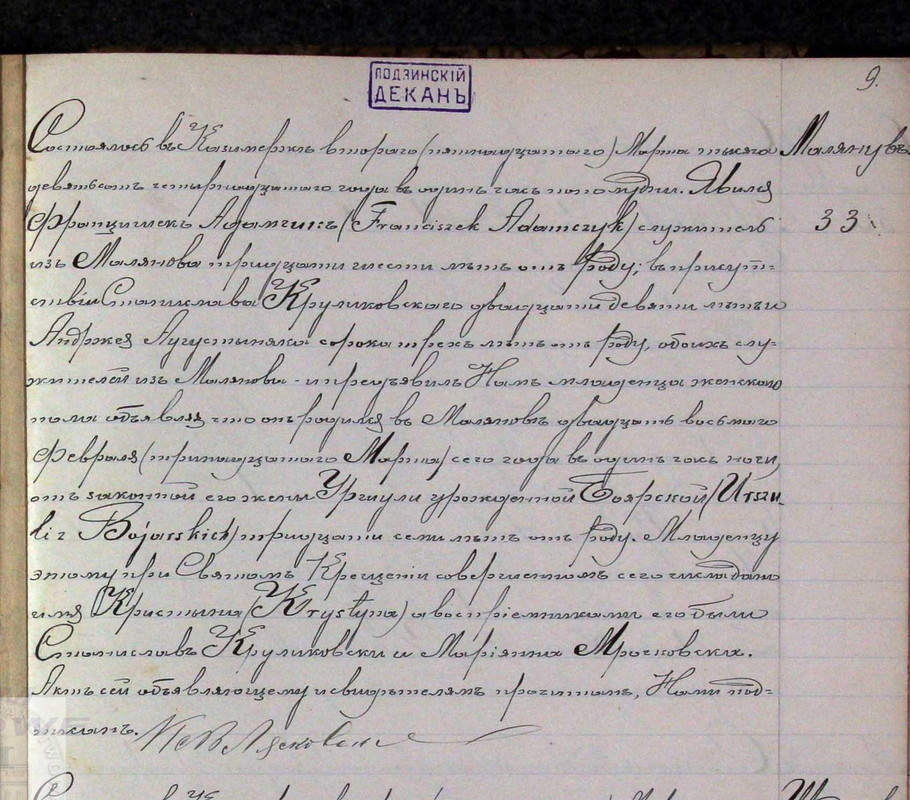 ЛОДЗИНСКІЙ
ДЕКАНЪ
9.
Состоялось въ Казимержѣ втораго (пятнадцатаго) Марта тысяча
девятьсотъ четырнадцатаго года въ одинъ часъ пополудни. Явился
Францишекъ Адамчикъ (Franciszek Adamczyk) служитель
изъ Малянова тридцати шести лѣтъ отъ роду; въ присут=
ствіи Станислава Круликовскаго двадцати девяти лѣтъ и
Андржея Аугустыняка сорока трехъ лѣтъ отъ роду, обоихъ слу=
жителей изъ Малянова - и предъявилъ Намъ младенца женскаго
пола объявляя что онъ родился въ Маляновѣ двадцать восьмаго
Февраля (тринадцатаго Марта) сего года въ одинъ часъ ночи,
отъ законной его жены Уршули урожденной Боярской (Urszu-
li z Bojarskich) тридцати семи лѣтъ отъ роду. Младенцу
этому при Святомъ Крещеніи совершенномъ сего числа дано
имя Кристына (Krystyna) а воспріемниками его были
Станиславъ Круликовски и Маріянна Мрочковска.
Актъ сей объявляющему и свидѣтелямъ прочитанъ, Нами под=
писанъ.
Маляновъ
33